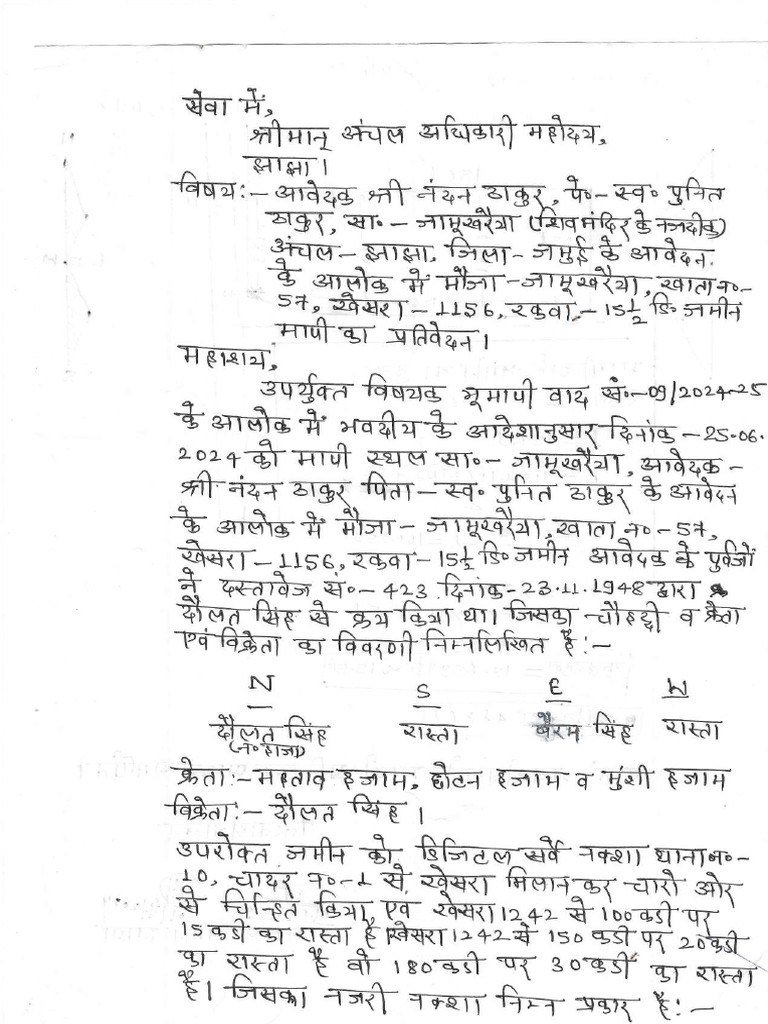 सेवा में,
श्रीमान् अंचल अधिकारी महोदय,
झाझा।
विषय:- आवेदक श्री नंदन ठाकुर, पे०- स्व० पुनित
ठाकुर, सा०- जामूखरैया (शिव मंदिर के नजदीक)
अंचल- झाझा, जिला- जमुई के आवेदन
के आलोक में मौजा- जामूखरैया, खाता न०-
57, खेसरा- 1156, रकवा,- 15½ डि० जमीन
मापी का प्रतिवेदन।
महाशय,
उपर्युक्त विषयक भूमापी वाद सं०-09/2024-25
के आलोक में भवदीय के आदेशानुसार दिनांक-25.06.
2024 को मापी स्थल सा०- जामूखरैया, आवेदक-
श्री नंदन ठाकुर पिता- स्व० पुनित ठाकुर के आवेदन
के आलोक में मौजा- जामूखरैया, खाता न०-57,
खेसरा-1156, रकवा-15½ डि० जमीन आवेदक के पुर्वजों
ने दस्तावेज सं०-423 दिनांक-23.11.1948 द्वारा
दौलत सिंह से क्रय किया था। जिसका चौहद्दी व क्रेता
एवं विक्रेता का विवरणी निम्नलिखित है:-
N S E W
दौलत सिंह रास्ता बैरम सिंह रास्ता
क्रेता:- महताव हजाम, छोटन हजाम व मुंशी हजाम
विक्रेता:- दौलत सिंह।
उपरोक्त जमीन को डिजिटल सर्वे नक्शा थाना न०-
10, चादर न०-1 से, खेसरा मिलान कर चारो ओर
से चिन्हित किया, एवं खेसरा 1242 से 100 कडी पर
15 कडी का रास्ता है। खेसरा 1242 से 150 कडी पर 20 कडी
का रास्ता है वो 180 कडी पर 30 कडी का रास्ता
है। जिसका नजरी नक्शा निम्न प्रकार है:-